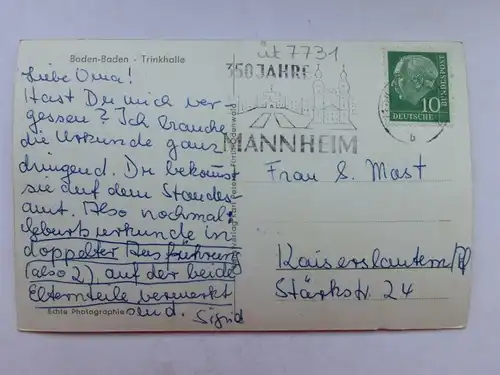 Baden-Baden - Trinkhalle
Liebe Oma!
Hast Du mich ver
gessen? Ich brauche
die Urkunde ganz
dringend. Du bekomst
sie auf dem Standes
amt. Also nochmal:
Geburtsurkunde in
doppelter Ausführung
(also 2), auf der beide
Elternteile vermerkt
sind. Sigrid
Echte Photographie
üt 7731
350 JAHRE
MANNHEIM
10
DEUTSCHE
BUNDESPOST
b
Frau S. Mast
Kaiserslautern/Pf
Stärkstr. 24